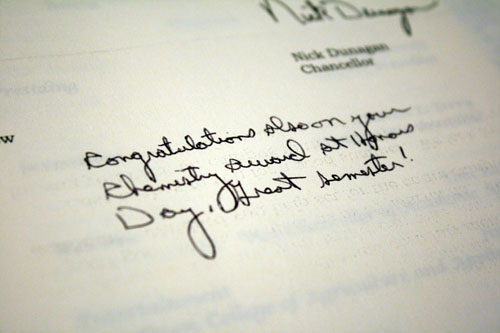 Nick Dunagan
Nick Dunagan
Chancellor
w
Congratulations also on your
Chemistry award at Honors
Day. Great semester!